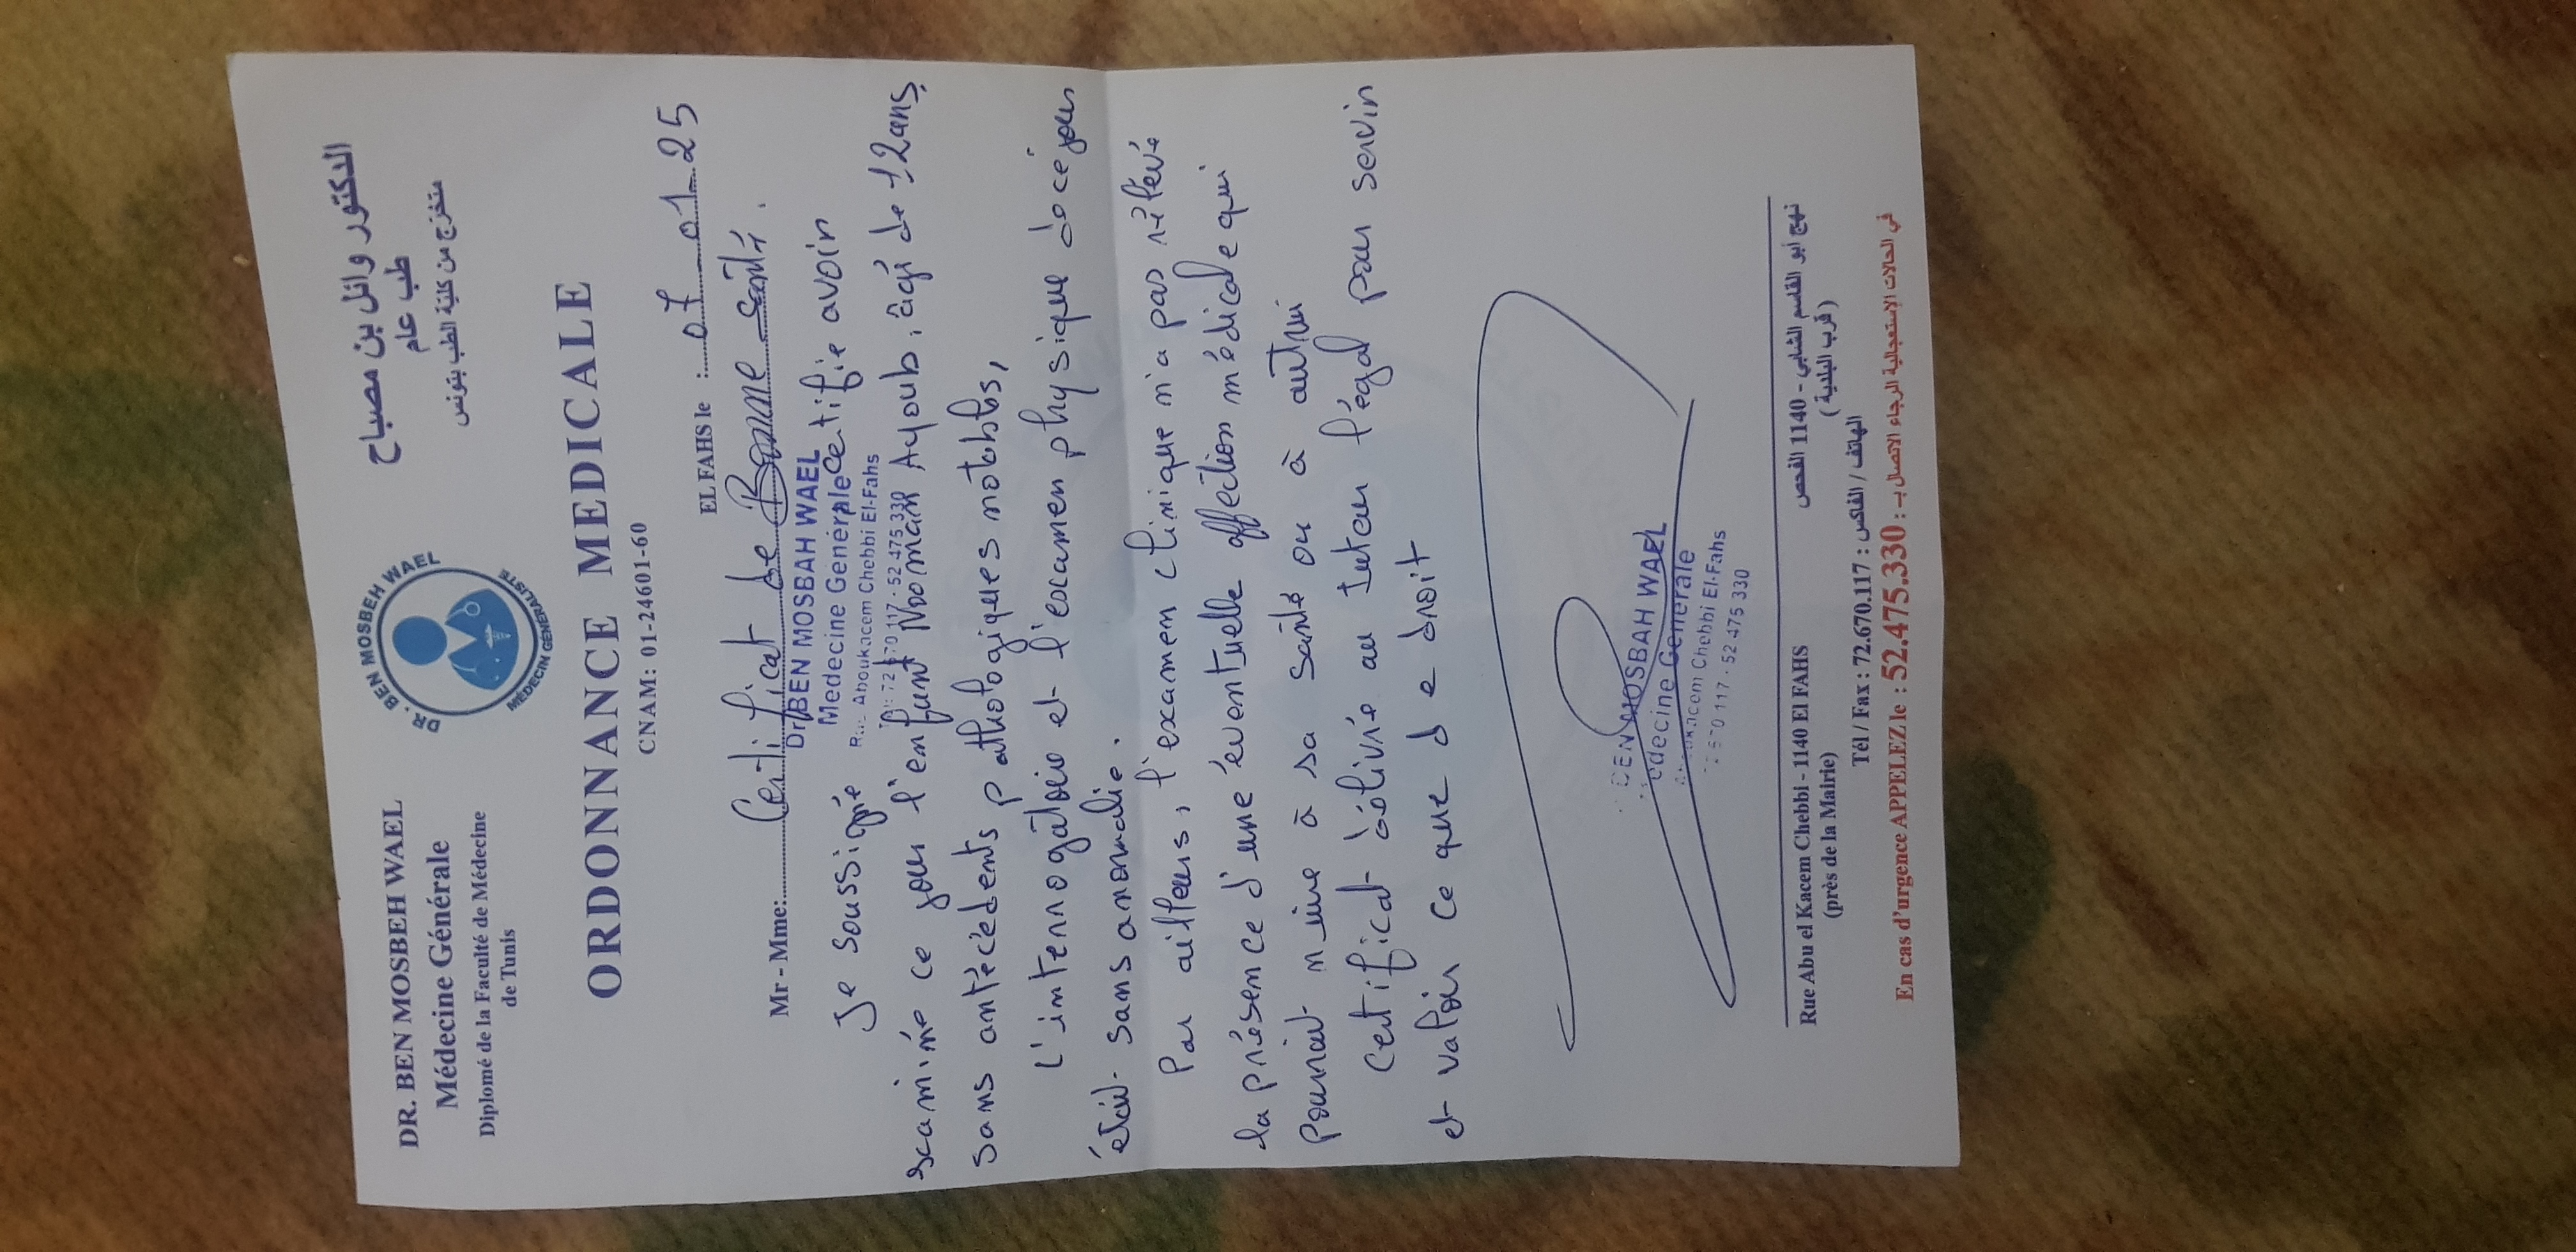 DR. BEN MOSBEH WAEL
Médecine Générale
Diplomé de la Faculté de Médecine
de Tunis
DR. BEN MOSBEH WAEL
MÉDECIN GÉNÉRALISTE
الدكتور وائل بن مصباح
طب عام
متخرج من كلية الطب بتونس
ORDONNANCE MEDICALE
CNAM: 01-24601-60
EL FAHS le : 07 01 25
Mr - Mme: Certificat de Bonne santé.
Dr BEN MOSBAH WAEL
Medecine Generale
Aboukacem Chebbi El-Fahs
52 475 330
Je soussigné certifie avoir
examiné ce jour l'enfant Nooman Ayoub, âgé de 12ans,
sans antécédents pathologiques notables,
L'interrogatoire et l'examen physique de ce jour
était sans anomalie.
Par ailleurs, l'examen clinique n'a pas rélévé
la présence d'une éventuelle affection médicale qui
pourrait nuire à sa santé ou à autrui
Certificat délivré au tuteur légal pour servir
et valoir ce que de droit
BEN MOSBAH WAEL
edecine Generale
Chebbi El-Fahs
117 - 52 475 330
Rue Abu el Kacem Chebbi - 1140 El FAHS
(près de la Mairie)
نهج أبو القاسم الشابي - 1140 الفحص
( قرب البلدية )
Tél / Fax : 72.670.117 : الهاتف / الفاكس
En cas d'urgence APPELEZ le : 52.475.330 : في الحالات الإستعجالية الرجاء الاتصال بـ